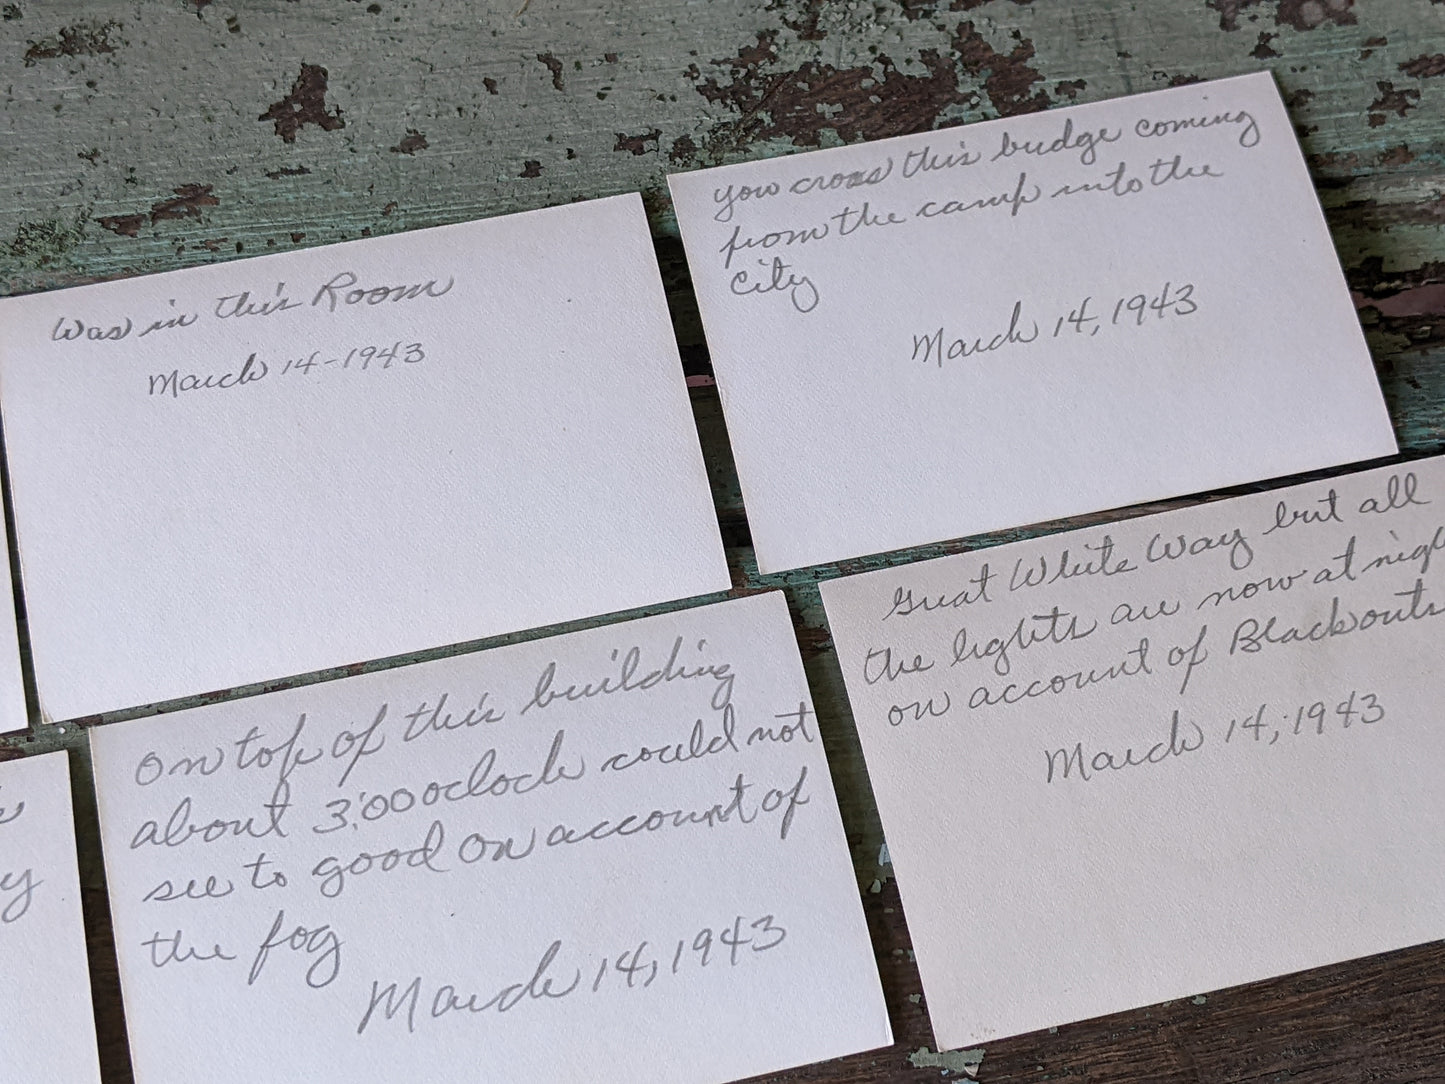 Was in this Room
March 14-1943
you cross this bridge coming
from the camp into the
city
March 14, 1943
On top of this building
about 3:00 oclock could not
see to good on account of
the fog
March 14, 1943
Great White Way but all
the lights are now at nigh
on account of Blackouts
March 14, 1943
y